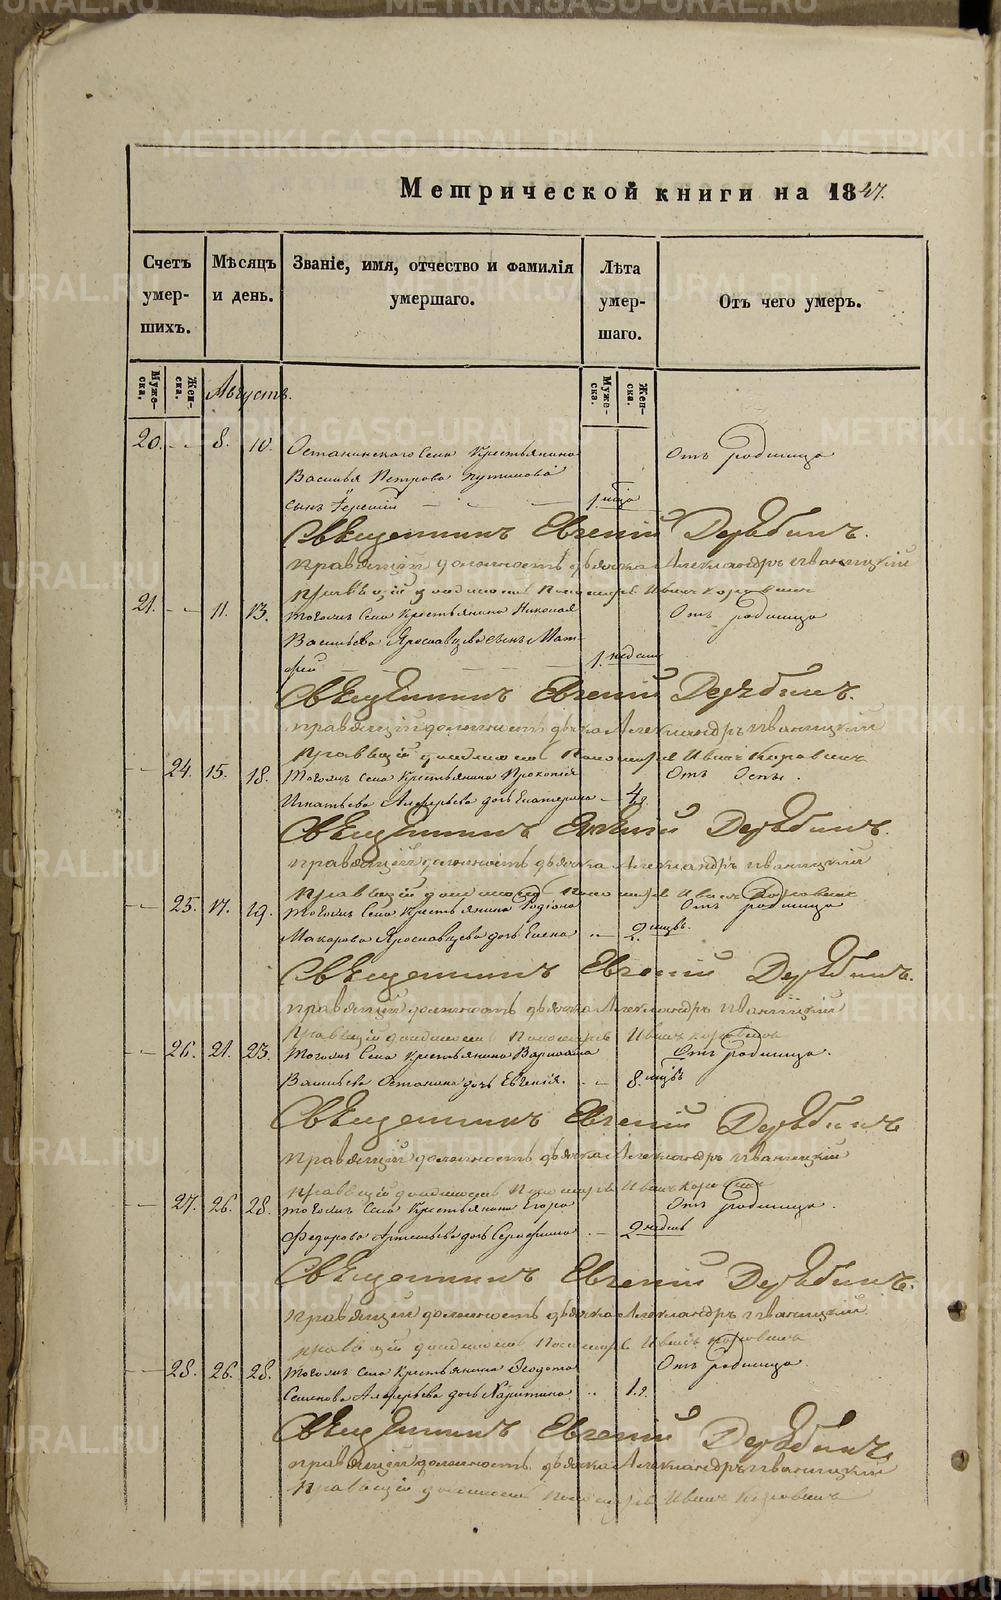 METRIKI.GASO-URAL.RU
Метрической книги на 1847.
Счетъ умершихъ.
Мѣсяцъ и день.
Званіе, имя, отчество и фамилія умершаго.
Лѣта умершаго.
Отъ чего умеръ.
Мужеска.
Женска.
Августъ.
Мужеска.
Женска.
20. 8. 10. Останинскаго Села Крестьянина Отъ родимца
Василья Петрова
сынъ 1 мѣца
Священникъ Евгений Дерябинъ.
правящій должность дьячка Александръ Иваницкий
правящій должность Пономаря Иванъ Коровинъ
21. 11. 13. Тогожъ Села Крестьянина Николая Отъ родимца
Васильева Ярославцева сынъ Мат-
фей 1. недели
Священникъ Евгений Дерябинъ.
правящій должность дьячка Александръ Иваницкий
правящій должность Пономаря Иванъ Коровинъ
24. 15. 18. Тогожъ Села Крестьянина Прокопія Отъ Оспы.
Игнатьева Алферьева дочь Екатерина 4.г.
Священникъ Евгений Дерябинъ.
правящій должность дьячка Александръ Иваницкий
правящій должность Пономаря Иванъ Коровинъ
25. 17. 19. Тогожъ Села Крестьянина Родіона Отъ родимца
Макарова Ярославцева дочь Елена 2. мцъ.
Священникъ Евгений Дерябинъ.
правящій должность дьячка Александръ Иваницкий
правящій должность Пономаря Иванъ Коровинъ
26. 21. 23. Тогожъ Села Крестьянина Варлаама Отъ родимца.
Васильева Останина дочь Евгенія. 8. мцъ
Священникъ Евгений Дерябинъ
правящій должность дьячка Александръ Иваницкий
правящій должность Пономаря Иванъ Коровинъ
27. 26. 28. Тогожъ Села Крестьянина Егора Отъ родимца.
Федорова Артемьева дочь Серафима 2 недель
Священникъ Евгений Дерябинъ.
правящій должность дьячка Александръ Иваницкий
правящій должность Пономаря Иванъ Коровинъ
28. 26. 28. Тогожъ Села Крестьянина Ѳедота Отъ родимца.
Семенова Алферьева дочь Харитина 1.г.
Священникъ Евгений Дерябинъ
правящій должность дьячка Александръ Иваницкий
правящій должность Пономаря Иванъ Коровинъ